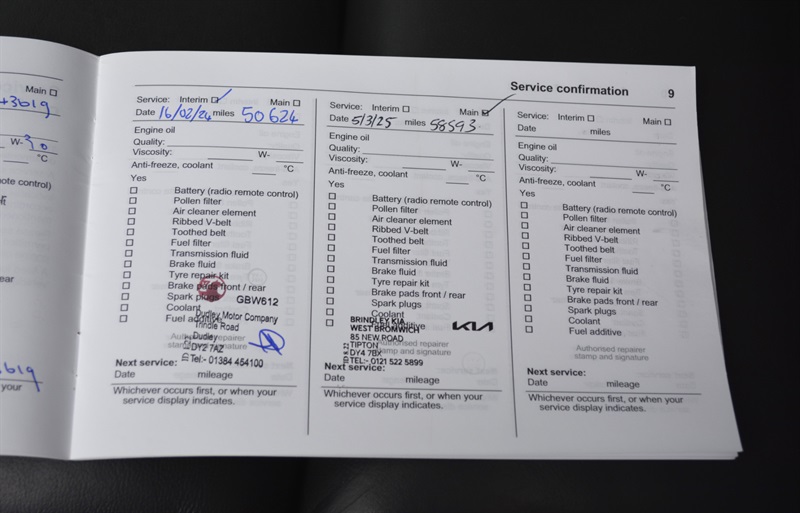 Main ☐
W-30
°C
ote control)
ear
your
Service confirmation 9
Service: Interim ☑ Main ☐
Date 16/02/24 miles 50624
Engine oil
Quality:
Viscosity: W-
Anti-freeze, coolant °C
Yes
☐ Battery (radio remote control)
☐ Pollen filter
☐ Air cleaner element
☐ Ribbed V-belt
☐ Toothed belt
☐ Fuel filter
☐ Transmission fluid
☐ Brake fluid
☐ Tyre repair kit
☐ Brake pads front / rear
☐ Spark plugs
☐ Coolant
☐ Fuel additive
GBW612
Dudley Motor Company
Trindle Road
Dudley
DY2 7AZ
Tel:- 01384 454100
Authorised repairer
stamp and signature
Next service:
Date mileage
Whichever occurs first, or when your
service display indicates.
Service: Interim ☐ Main ☑
Date 5/3/25 miles 58593
Engine oil
Quality:
Viscosity: W-
Anti-freeze, coolant °C
Yes
☐ Battery (radio remote control)
☐ Pollen filter
☐ Air cleaner element
☐ Ribbed V-belt
☐ Toothed belt
☐ Fuel filter
☐ Transmission fluid
☐ Brake fluid
☐ Tyre repair kit
☐ Brake pads front / rear
☐ Spark plugs
☐ Coolant
☐ Fuel additive
BRINDLEY KIA
WEST BROMWICH
85 NEW ROAD
TIPTON
DY4 7BX
TEL:- 0121 522 5899
KIA
Authorised repairer
stamp and signature
Next service:
Date mileage
Whichever occurs first, or when your
service display indicates.
Service: Interim ☐ Main ☐
Date miles
Engine oil
Quality:
Viscosity: W-
Anti-freeze, coolant °C
Yes
☐ Battery (radio remote control)
☐ Pollen filter
☐ Air cleaner element
☐ Ribbed V-belt
☐ Toothed belt
☐ Fuel filter
☐ Transmission fluid
☐ Brake fluid
☐ Tyre repair kit
☐ Brake pads front / rear
☐ Spark plugs
☐ Coolant
☐ Fuel additive
Authorised repairer
stamp and signature
Next service:
Date mileage
Whichever occurs first, or when your
service display indicates.